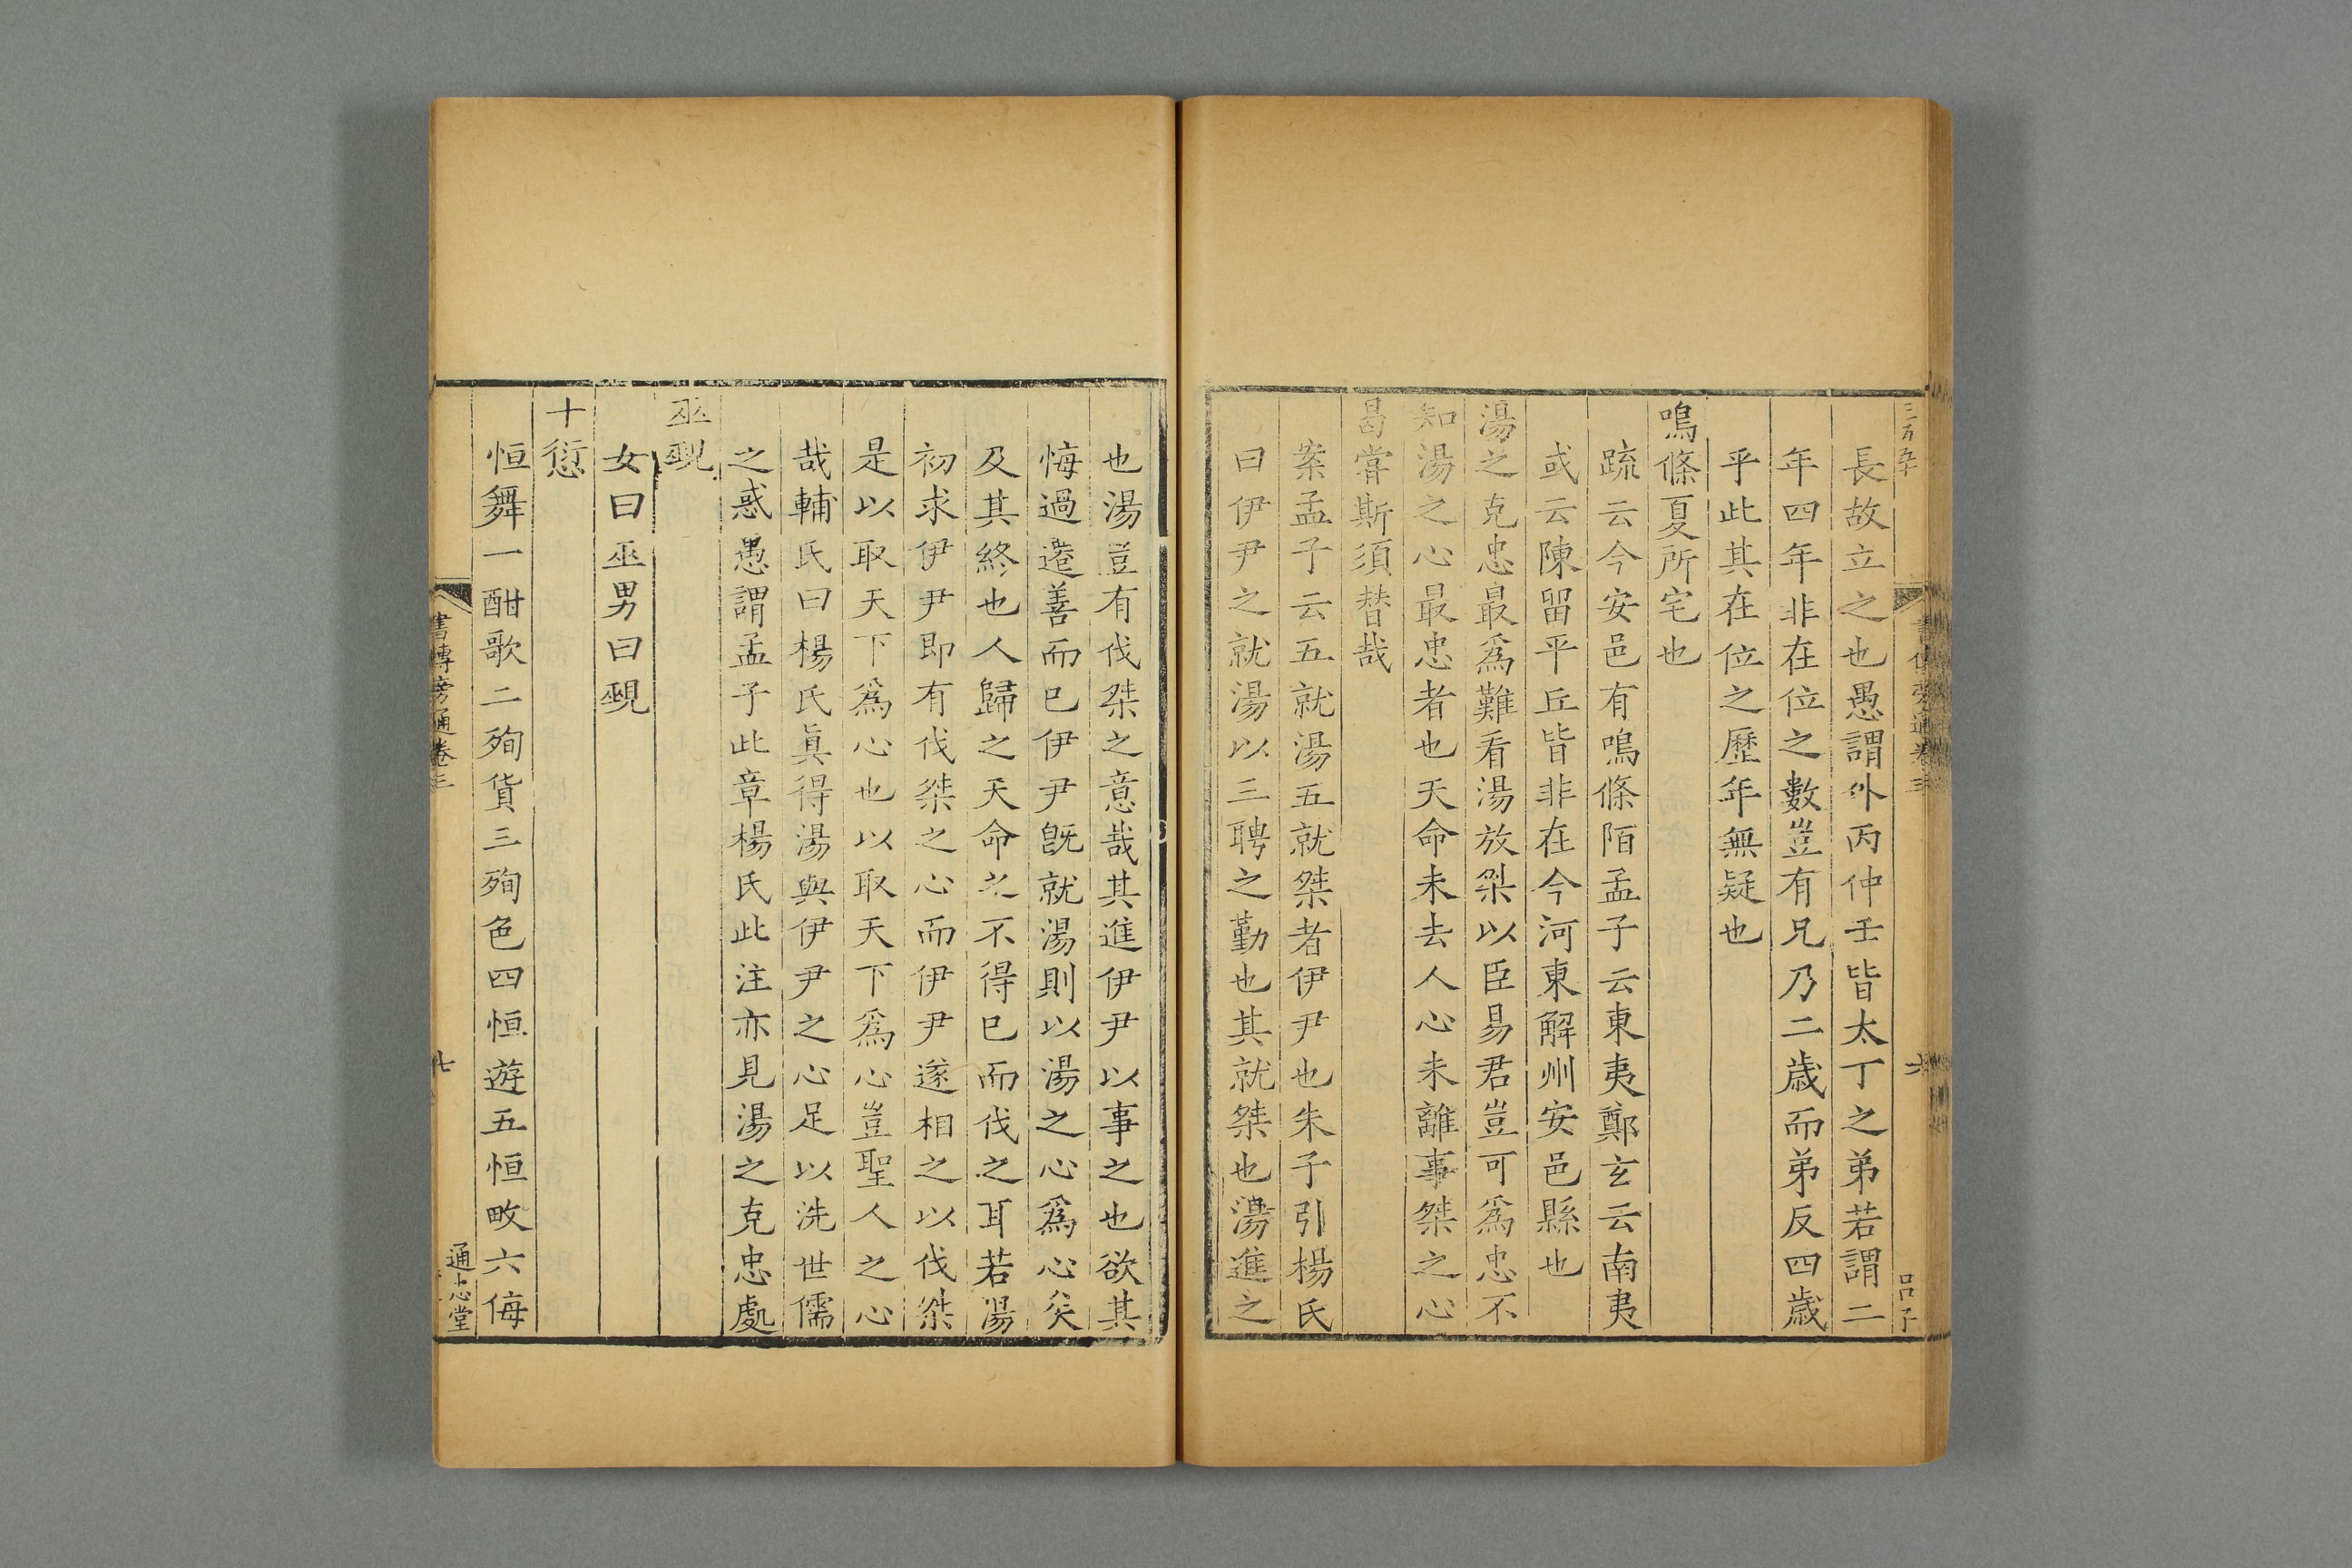 長故立之也愚謂外丙仲壬皆太丁之弟若謂二
年四年非在位之數豈有兄乃二歲而弟反四歲
乎此其在位之歷年無疑也
鳴條夏所宅也
疏云今安邑有鳴條陌孟子云東夷鄭玄云南夷
或云陳留平丘皆非在今河東解州安邑縣也
湯之克忠最爲難看湯放桀以臣易君豈可爲忠不
知湯之心最忠者也天命未去人心未離事桀之心
曷嘗斯須替哉
案孟子云五就湯五就桀者伊尹也朱子引楊氏
曰伊尹之就湯以三聘之勤也其就桀也湯進之
也湯豈有伐桀之意哉其進伊尹以事之也欲其
悔過遷善而已伊尹既就湯則以湯之心爲心矣
及其終也人歸之天命之不得已而伐之耳若湯
初求伊尹即有伐桀之心而伊尹遂相之以伐桀
是以取天下爲心也以取天下爲心豈聖人之心
哉輔氏曰楊氏眞得湯與伊尹之心足以洗世儒
之惑愚謂孟子此章楊氏此注亦見湯之克忠處
巫覡
女曰巫男曰覡
十愆
恒舞一酣歌二殉貨三殉色四恒遊五恒畋六侮
書傳旁通卷三
七
通志堂